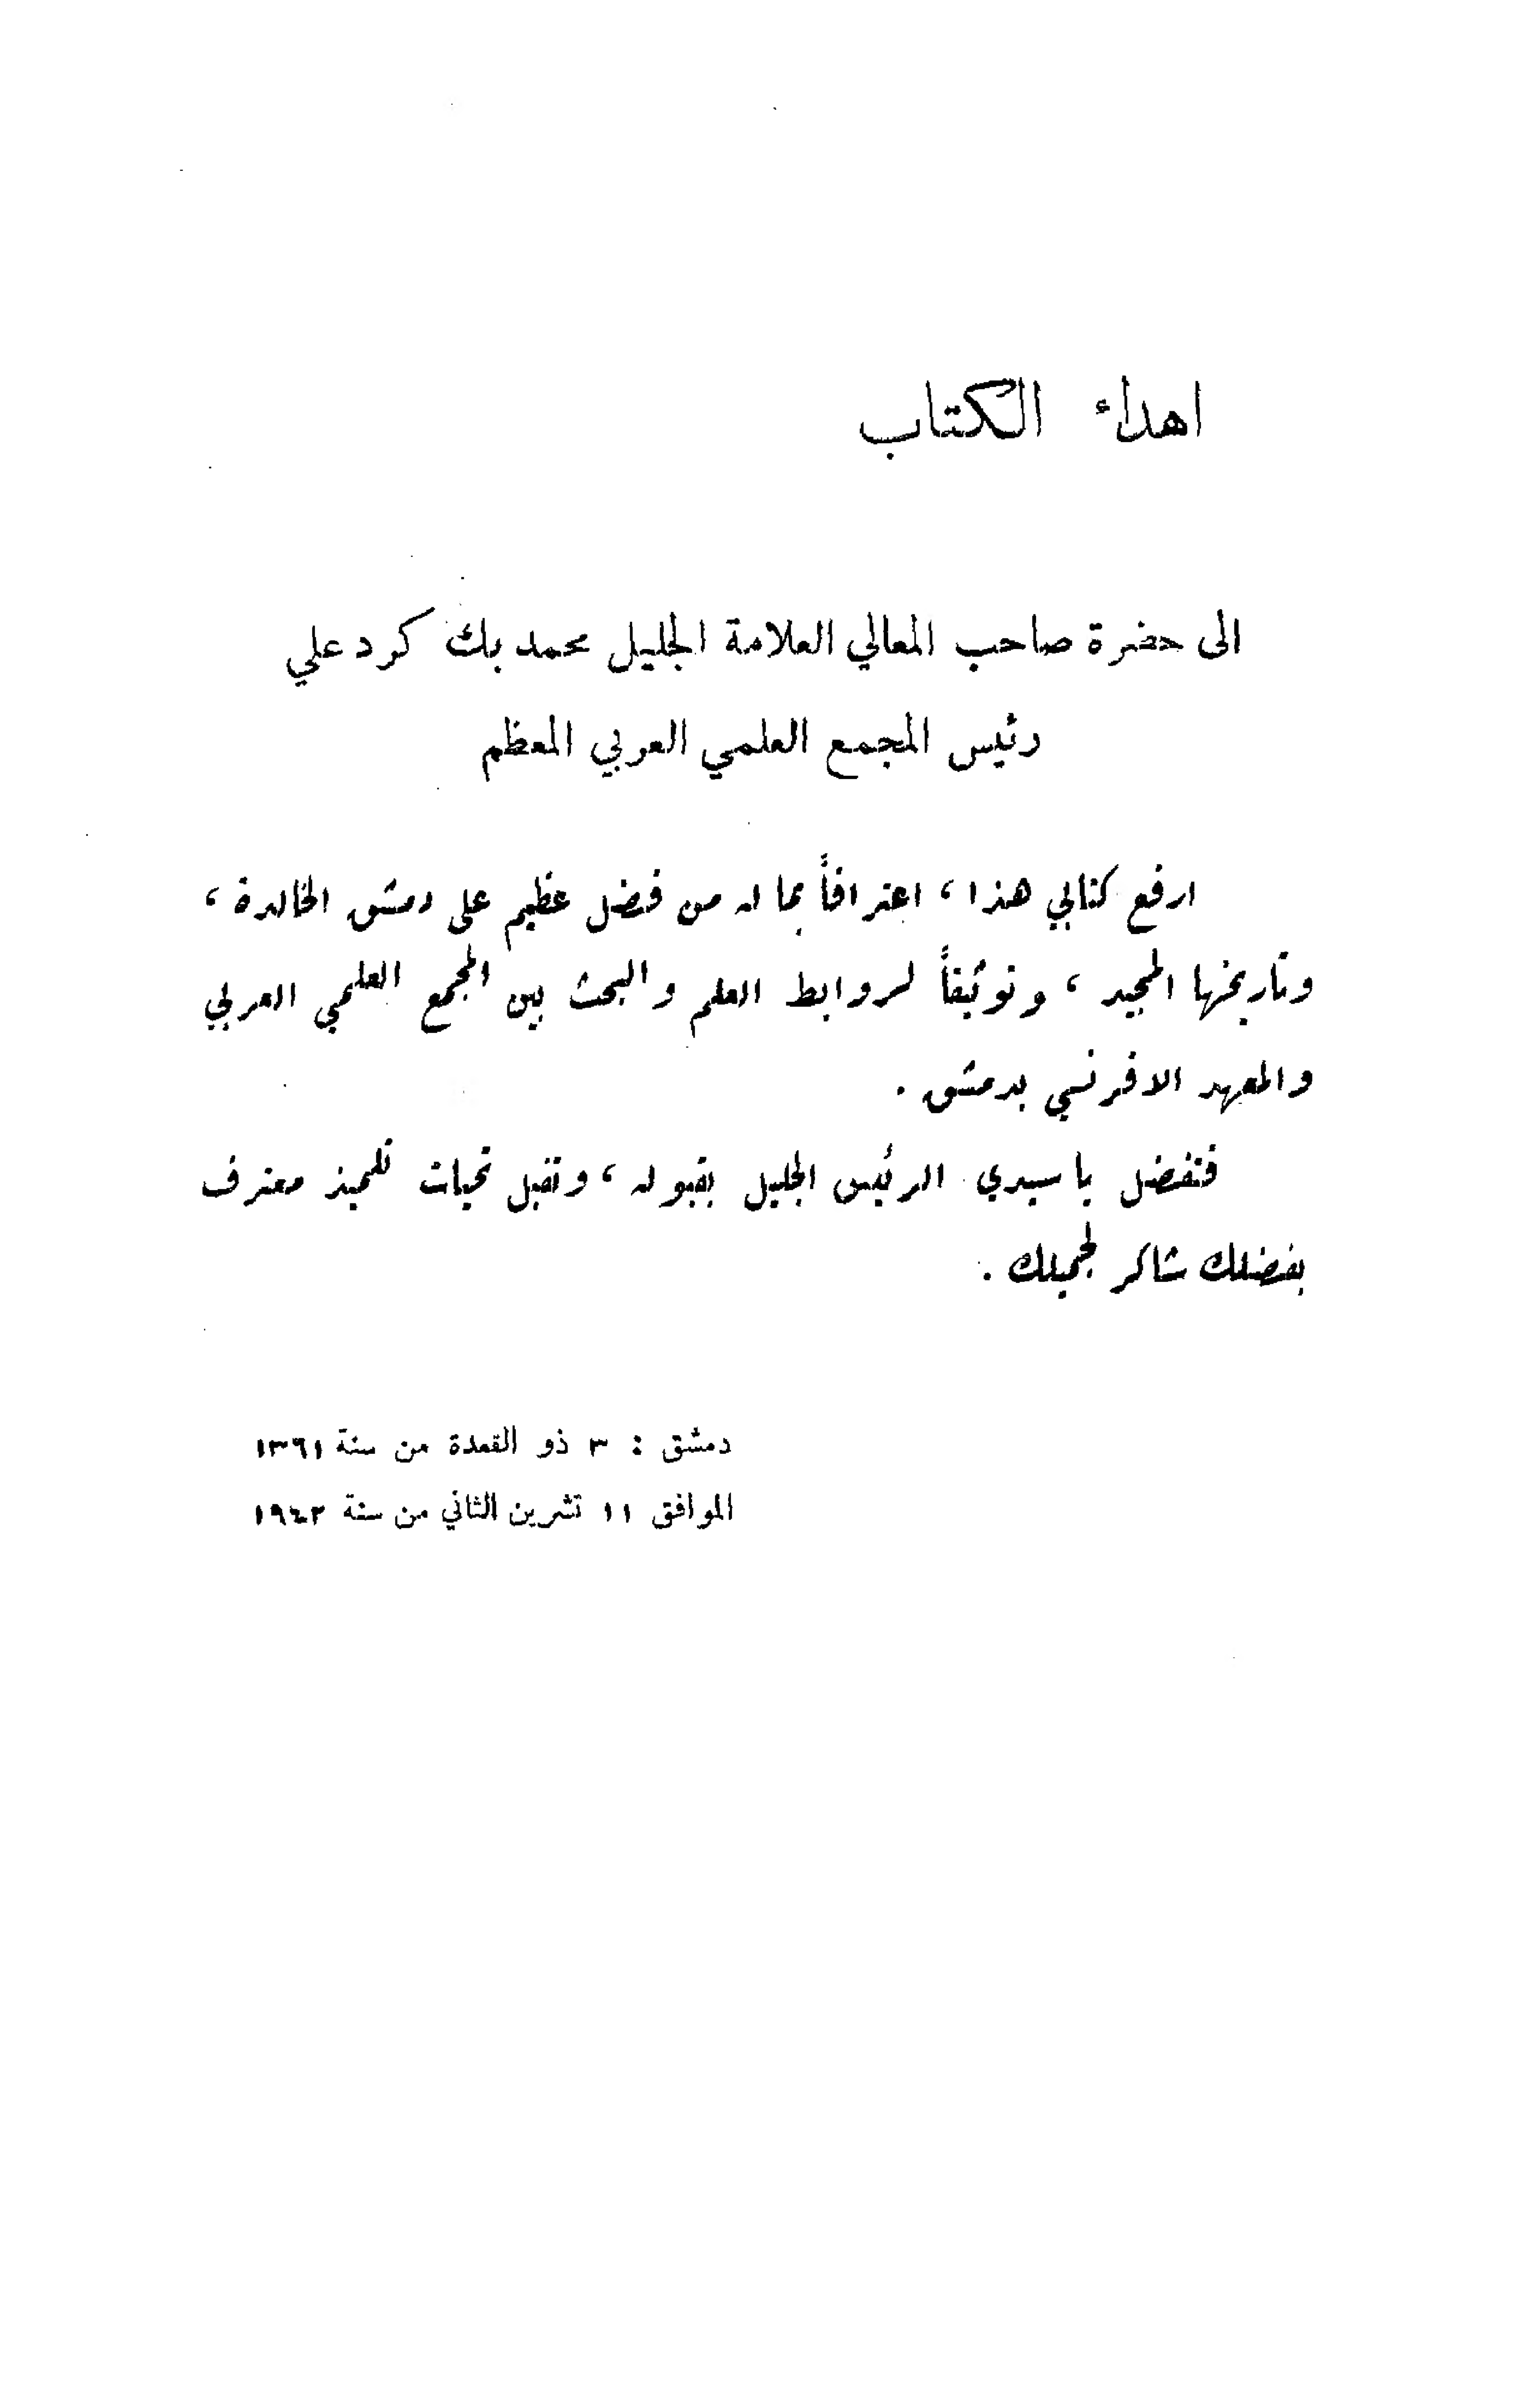 اهداء الكتاب
الى حضرة صاحب المعالي العلامة الجليل محمد بك كرد علي
رئيس المجمع العلمي العربي المعظم
ارفع كتابي هذا ، اعترافاً بما له من فضل عظيم على دمشق الخالدة ،
وتاريخها المجيد ، وتوثيقاً لروابط العلم والبحث بين المجمع العلمي العربي
والمعهد الافرنسي بدمشق .
فتفضل يا سيدي الرئيس الجليل بقبوله ، وتقبل تحيات تلميذ معترف
بفضلك شاكر لجميلك .
دمشق : ٣ ذو القعدة من سنة ١٣٦١
الموافق ١١ تشرين الثاني من سنة ١٩٤٢